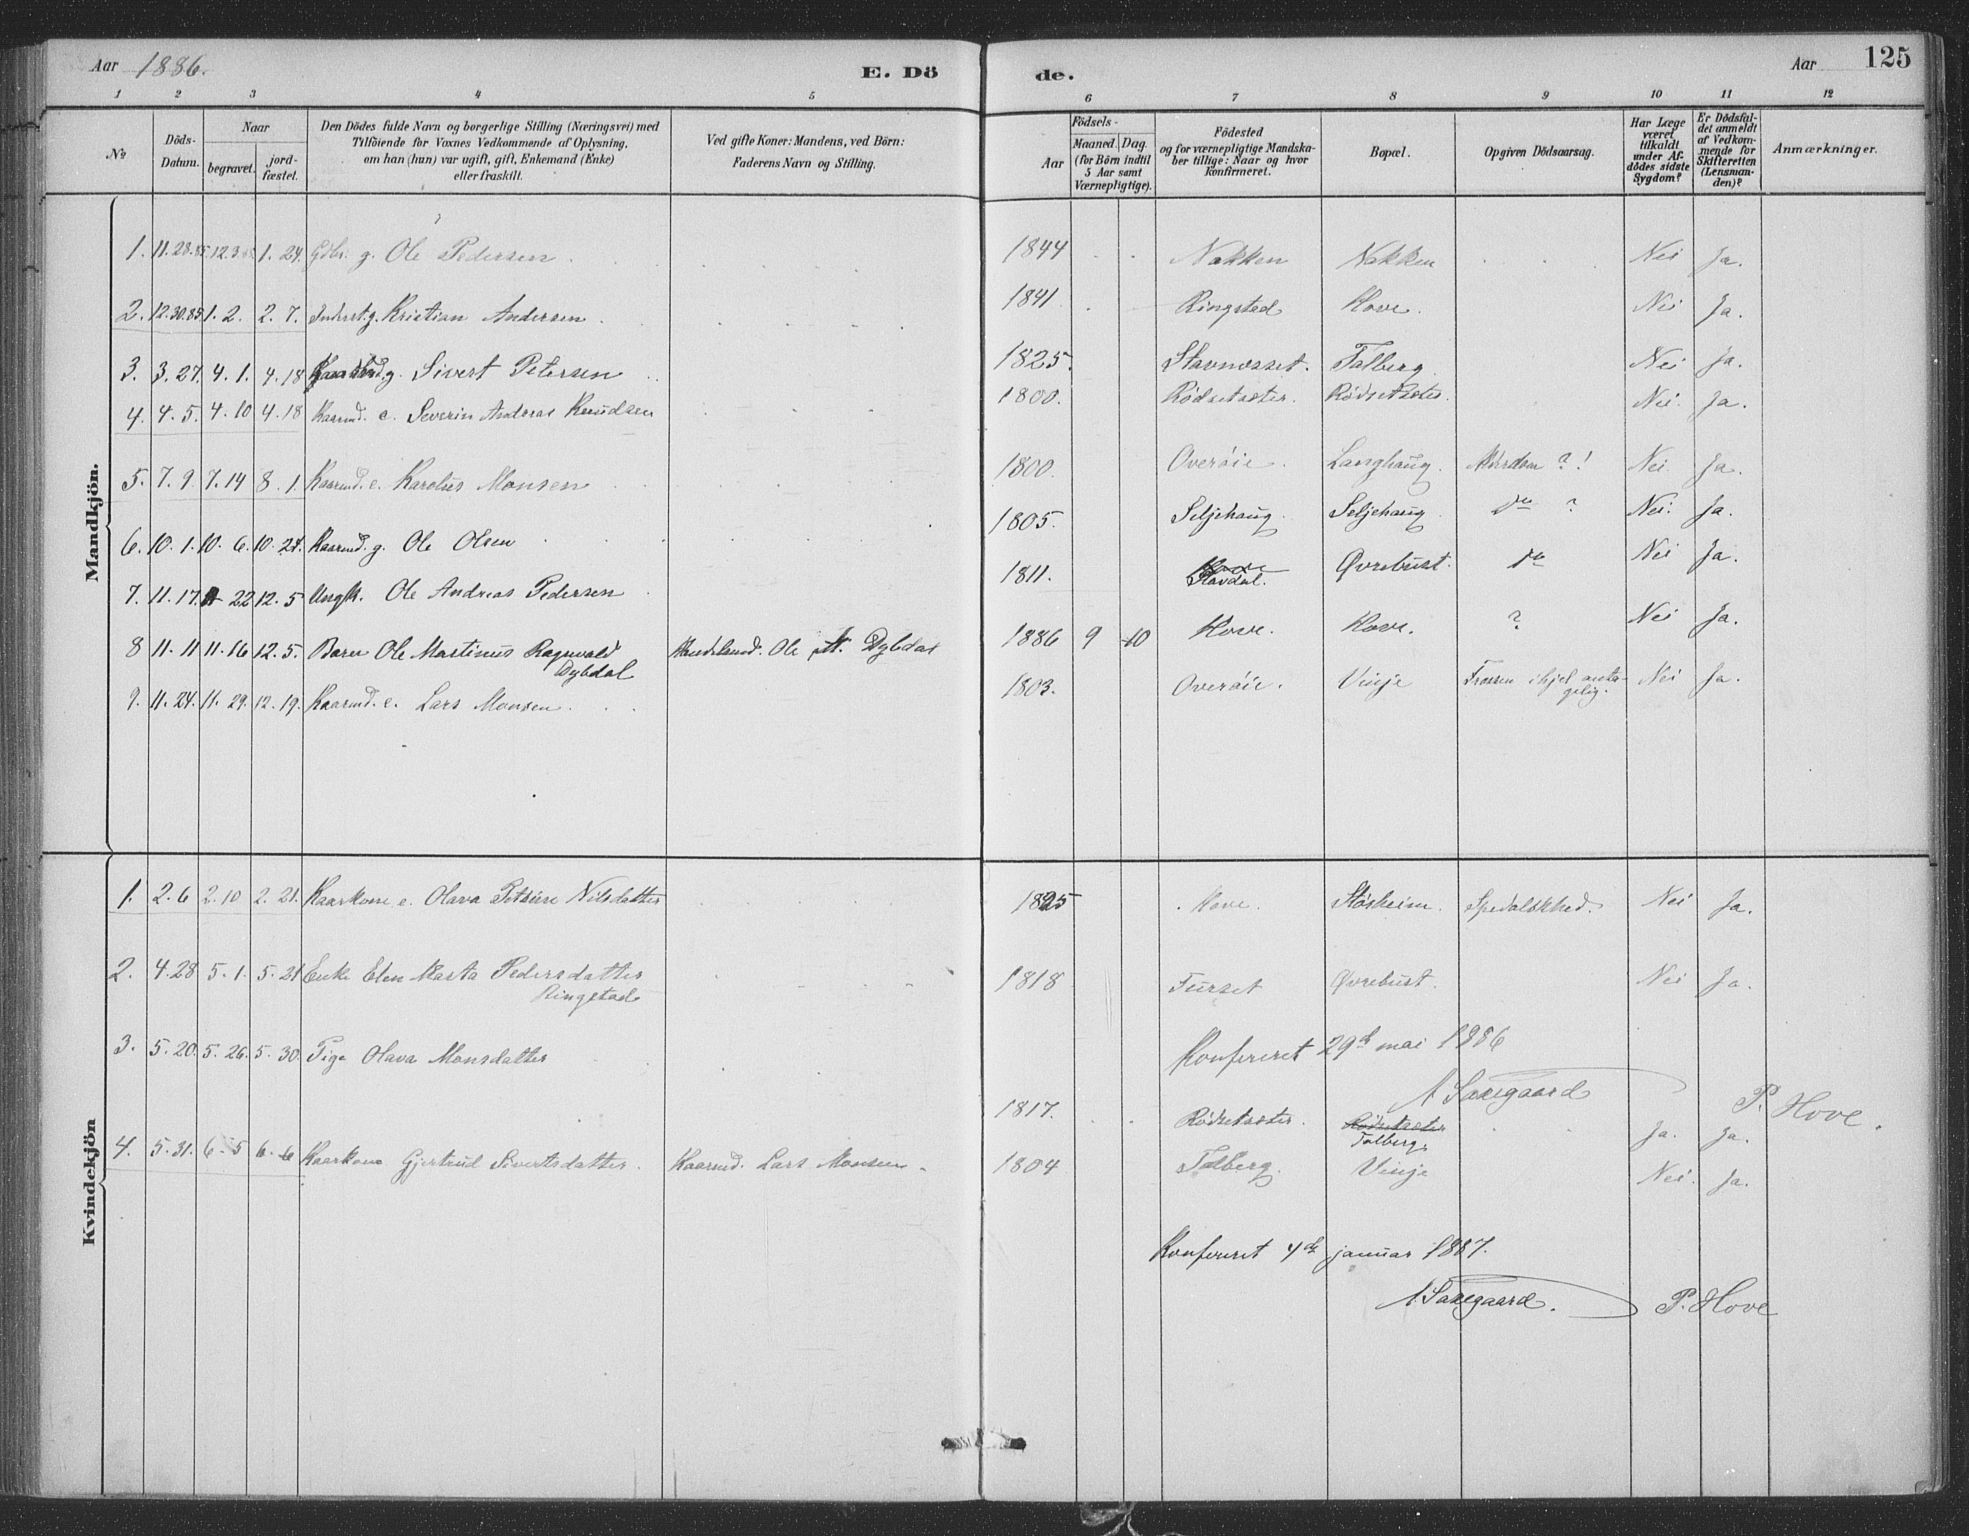 Aar 1886.
E. Dö
de.
Aar
125
1 2 3 4 5 6 7 8 9 10 11 12
No
Döds-Datum.
Naar
begravet.
jord-fæstet.
Den Dödes fulde Navn og borgerlige Stilling (Næringsvei) med
Tilföiende for Voxnes Vedkommende af Oplysning,
om han (hun) var ugift, gift, Enkemand (Enke)
eller fraskilt.
Ved gifte Koner: Mandens, ved Börn:
Faderens Navn og Stilling.
Födsels-
Aar
Maaned. Dag.
(for Börn indtil
5 Aar samt
Værnepligtige).
Födested
og for værnepligtige Mandska-
ber tillige: Naar og hvor
Konfirmeret.
Bopæl.
Opgiven Dödsaarsag.
Har Læge
været
tilkaldt
under Af-
dödes sidste
Sygdom?
Er Dödsfal-
det anmeldt
af Vedkom-
mende for
Skifteretten
(Lensman-
den)?
Anmærkninger.
Mandkjön.
1. 11. 28. 85. 12. 3 1. 24. Gbr. g. Ole Pedersen 1844 Nakken Nakken Nei Ja.
2. 12. 30. 85. 1. 2. 2. 7. Inderst. g. Kristian Andersen 1841 Ringstad Hove. Nei Ja.
3. 3. 27. 4. 1. 4. 18 g. Sivert Petersen 1825. Stavnesset. Talberg. Nei Ja.
4. 4. 5. 4. 10 4. 18 Kaarmd. e. Severin Andreas Knudsen 1800. Rødsetsæter. Rødsetsæter. Nei. Ja.
5. 7. 9. 7. 14 8. 1. Kaarmd. e. Karolus Monsen 1800. Overøie. Langhaug. Alderdom ?! Nei Ja.
6. 10. 1. 10. 6. 10. 24. Kaarmd. g. Ole Olsen 1805. Seljehaug. Seljehaug. do ? Nei. Ja.
7. 11. 17. 22 12. 5 Ungk. Ole Andreas Pedersen 1811. Hove Stavdal. Øvrebust. do Nei Ja.
8 11. 11 11. 16 12. 5. Barn Ole Martinus Ragnvald
Dybdal Handelsmd. Ole N. Dybdal 1886 9 10 Hove. Hove. ? Nei Ja.
9. 11. 24. 11. 29. 12. 19. Kaarmd. e. Lars Monsen 1803. Overøie. Vinje Frossen ihjel anta-
gelig. Nei Ja.
Kvindekjön
1. 2. 6 2. 10 2. 21. Kaarkone e. Olava Petrine Nilsdatter 1825 Hove. Størheim. Spedalskhed. Nei Ja.
2. 4. 28 5. 1. 5. 21 Enke Elen Marta Pedersdatter
Ringstad 1818 Furset Øvrebust. Nei Ja.
3. 5. 20. 5. 26. 5. 30. Pige Olava Monsdatter
Konfereret 29de mai 1886
A Saxegaard
P. Hove.
1817. Rødsetsæter. Rødsetsæter Talberg. Ja. Ja.
4. 5. 31. 6. 5 6. 6 Kaarkone Gjertrud Sivertsdatter. Kaarmd. Lars Monsen 1804 Talberg. Vinje Nei. Ja.
Konfereret 4de januar 1887.
A. Saxegaard. P. Hove